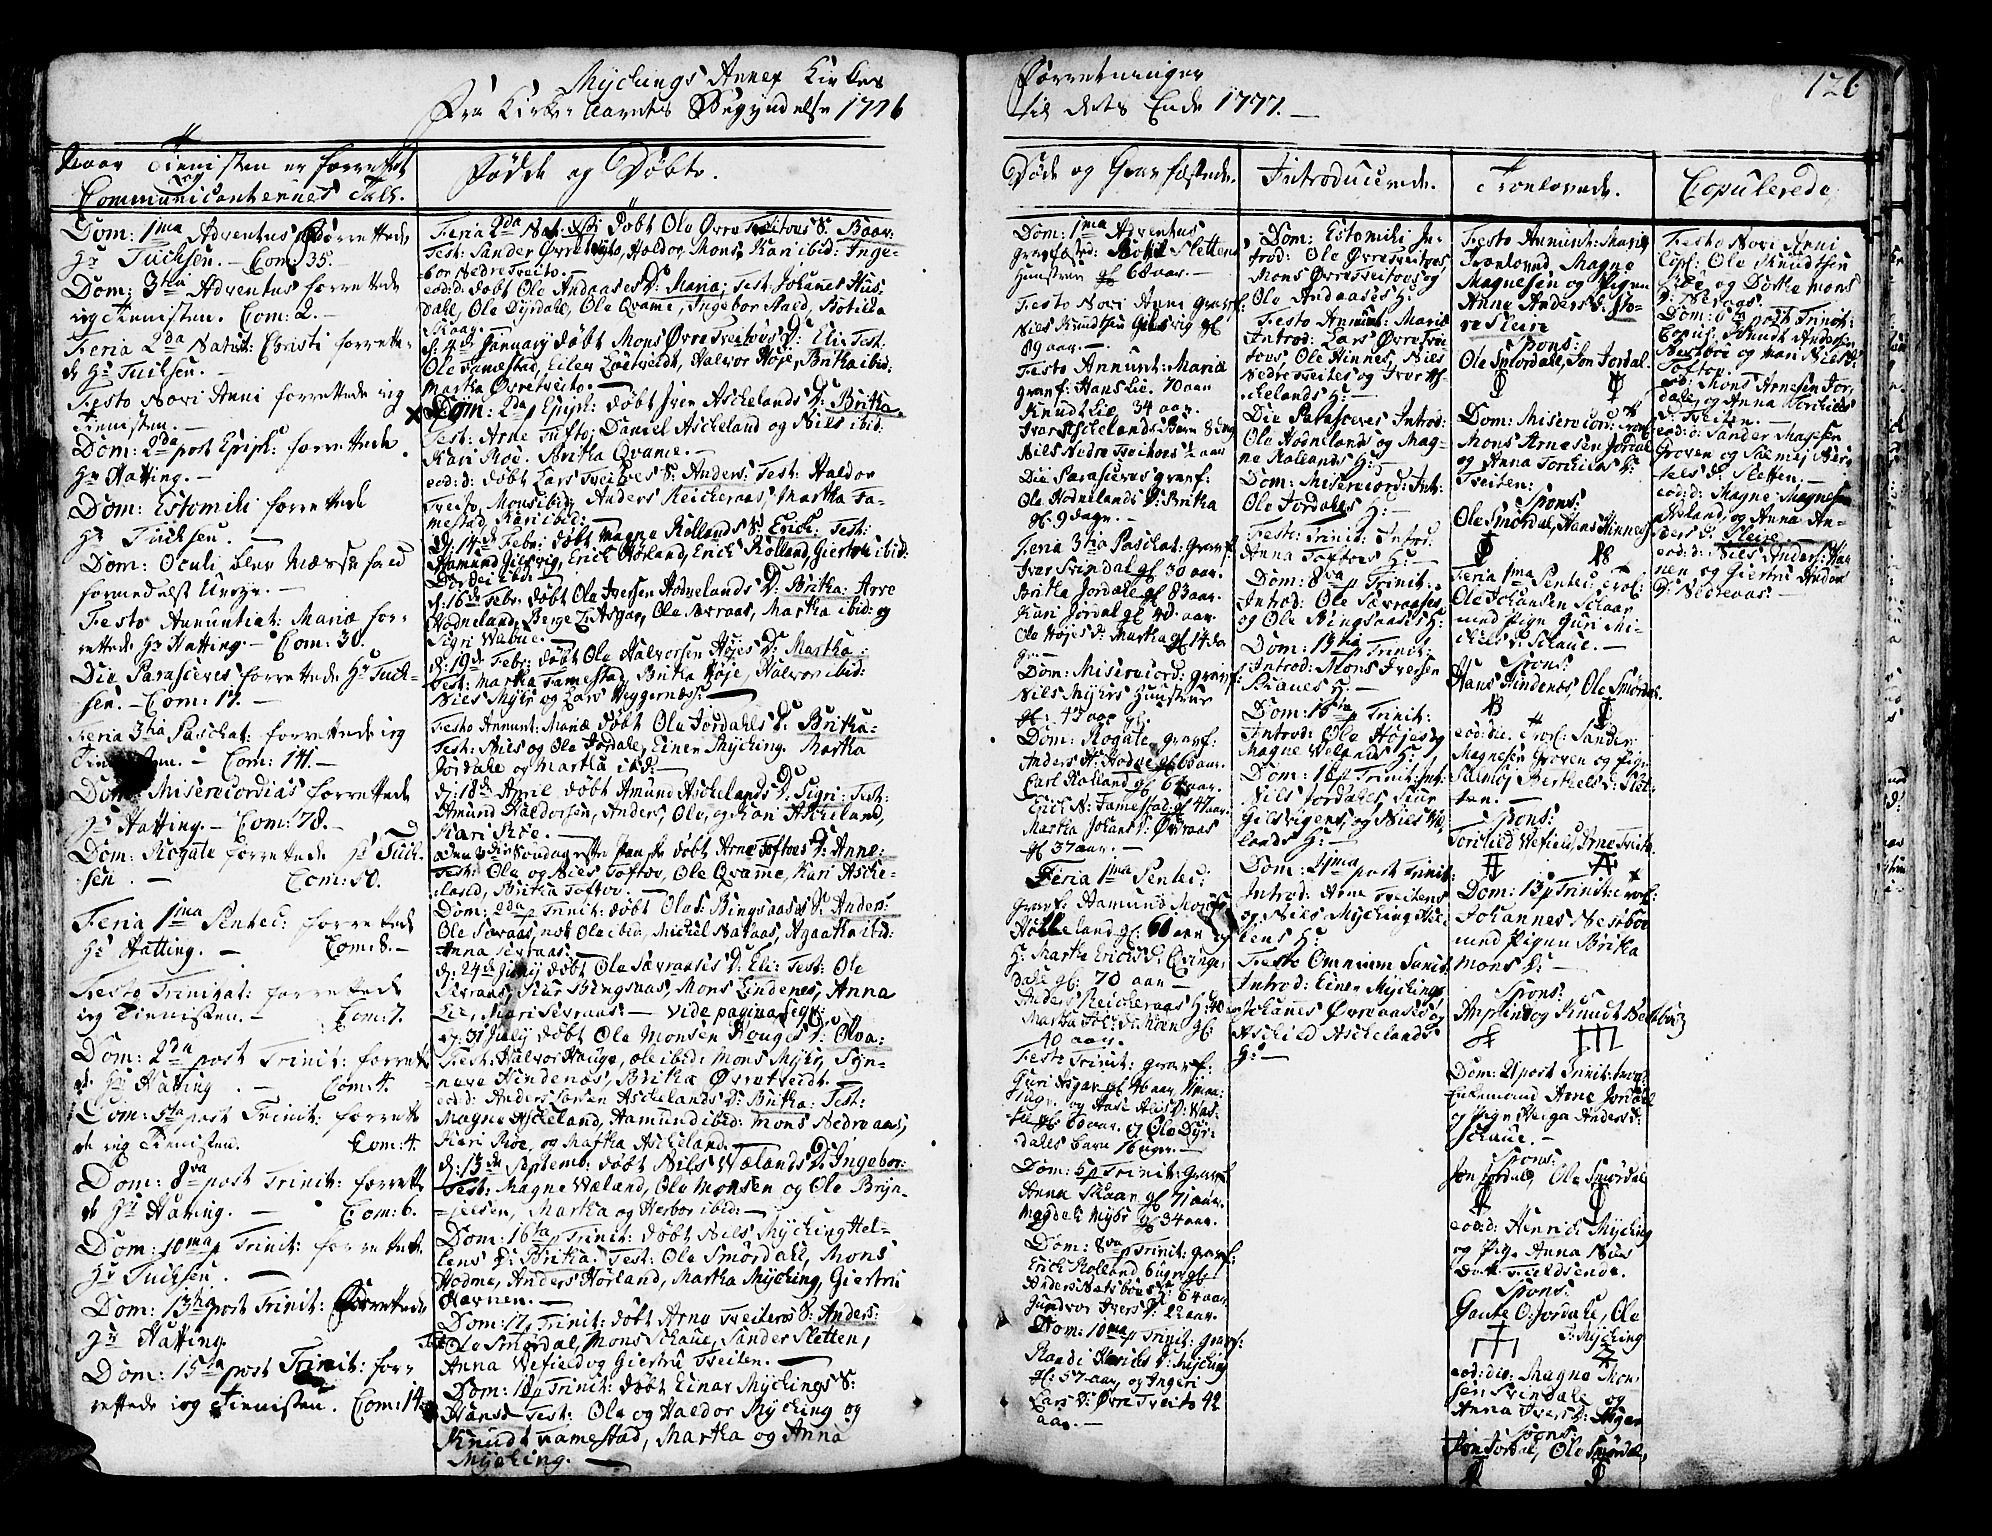 Mychings Annex Kirkes Forretninger
Fra Kirke Aarets Begyndelse 1776 til dets Ende 1777.
126
Naar Tienisten er forrettet
og
Communicanternes Tall.
Dom: 1ma Adventus forrettede
Hr Tuchsen. Com: 35.
Dom: 3tia Adventus forrettede
ieg Tienisten. Com: 2.
Feria 2da Nativit: Christi forrette-
de Hr Tuchsen.
Festo Novi Anni forrettede ieg
Tienisten.
Dom: 2da post Epiph: forrettede
Hr Hatting.
Dom: Estomihi forrettede
Hr Tuchsen.
Dom: Oculi blev Messe fald
formedelst Uveyr.
Festo Annuntiat: Mariæ for-
rettede Hr Hatting Com: 30.
Die Parasceves forrettede Hr Tuch-
sen. Com: 17.
Feria 3tia Paschat: forrettede ieg
Com: 141.
Dom: Misericordias forrettede
Hr Hatting. Com: 78.
Dom: Rogate forrettede Hr Tuch-
sen. Com: 50.
Feria 1ma Pentec: forrettede
Hr Hatting. Com: 8.
Festo Trinitat: forrettede
ieg Tienisten. Com: 7.
Dom: 2da post Trinit: forrett-
de Hr Hatting. Com: 4.
Dom: 5ta post Trinit: forrett-
de ieg Tienisten. Com: 4.
Dom: 8va post Trinit: forrette-
de Hr Hatting. Com: 6.
Dom: 10ma p Trinit: forrettede
Hr Tuchsen.
Dom: 13tia post Trinit: forrettede
Hr Hatting.
Dom: 15ta post Trinit: for-
rettede ieg Tienisten. Com: 14.
Fødde og Døbte.
Feria 2da Nat: døbt Ole Øvre Tveitoes S: Baar:
Test: Sander Øvretveito, Haldor, Mons, Kari ibid: Inge-
bor Nedre Tveito.
eod: d: døbt Ole Andaases D: Maria: Test: Johannes Hus-
dale, Ole Dyrdale, Ole Qvame, Ingebor Rald, Botilda
d: 4de January døbt Mons Øvre Tveitoes D: Eli: Test:
Ole Famestad, Halvor Høje, Britha ibid:
Martha Øvretveito.
Dom: 2da Epiph: døbt Iver Aschelands D: Britha.
Test: Arne Tufto, Daniel Ascheland og Niels ibid:
Kari Roe. Britha Qvame.
eod: d: døbt Lars Tveitoes S: Anders: Test: Haldor
Tveito, Mons ibid: Anders Reicheraas, Martha Fa-
mestad, Kari ibid:
d: 14de Febr: døbt Magne Rollands S: Erich. Test:
Hamund Gielsvig, Erich Hørland, Erich Rolland, Giertrue ibid:
d: 16de Febr. døbt Ole Iversen Hodnelands D: Britha: Arve
Hodneland, Berge Ole Sævraas, Martha ibid: og
Sigri
d: 19de Febr: døbt Ole Halvorsen Højes D: Martha:
Test: Martha Famestad, Britha Høje, Halvor ibid:
Niels Myhr og Lars Heggernæs.
Festo Annunt: Mariæ døbt Ole Jordahls D: Britha:
Test: Niels og Ole Jordale, Einer Myching. Martha
Jordale og Martha ibid:
d: 18de April døbt Amund Aschelands D: Sigri: Test:
Amund Haldorsen, Anders, Ole, og Kari Ascheland,
Kari Roe.
døbt Arne Toftoes D: Anne:
Test: Ole og Niels Toftoe, Ole Qvame, Kari Asche-
land, Britha Toftoe.
Dom: 2da p Trinit: døbt Ole Bingsaases S: Anders:
Ole Sævraas, not Ole ibid, Michel Nataas, Agaatha ibid:
Anna Sevraas:
d: 24de Juny døbt Ole Sævraases D: Eli: Test: Ole
Sevraas, Siur Bingsaas, Mons Lindenes, Anna
Lee, Mari Sevraas. vide pagina seqv:
d: 31 July døbt Ole Monsen Houges D: Olva:
Test: Halvor Hauge, Ole ibid: Mons Myhr, Syn-
neve Hindenæs, Britha Øvretveidt.
eod: d: Anders Larsen Aschelands D: Britha: Test:
Magne Ascheland, Hamund ibid: Mons Nedre aas,
Kari Roe, og Martha Ascheland.
d: 13de Septemb: døbt Niels Wælands D: Ingebor:
Test: Magne Wæland, Ole Monsen og Ole Bryn-
jelsen, Martha og Herbor ibid:
Dom: 16ta p Trinit: døbt Niels Myching Hel-
lens D: Britha: Test: Ole Smørdale, Mons
Hodne, Anders Hørland, Martha Myching, Giertrui
Havnen.
Dom: 17 p Trinit: døbt Arne Tveitens S: Anders:
Ole Smørdal, Mons Schaue, Sander Sletten,
Anna Wefield og Giertru Tveiten.
Dom: 18 p Trinit: døbt Einar Mychings S:
Hans: Test: Ole og Haldor Myching og
Knudt Famestad, Martha og Anna
Myching.
Døde og Gravfæstede.
Dom: 1ma Adventus
Gravfæstet: Sletten
Huustrue gl 60 aar.
Festo Novi Anni gravf:
Niels Knudtsen Gielsvig gl
89 aar.
Festo Annunt: Mariæ
gravf: Hans Lie. 70 aar
Knudt Lie 34 aar.
Ivar Aschelands Barn 8 ug
Niels Nedre Tveitoes ½ aar
Die Parasceves gravf:
Ole Hodnelands D: Britha
gl. 9 dage.
Feria 3tia Paschat: Gravf
Ivar Svindal gl 30 aar.
Britha Jordale gl 83 aar.
Kari Jordal gl 40 aar.
Ole Højes D: Martha gl 14 da-
ge.
Dom: Misericord: gravf:
Niels Myhrs Huustrue
gl: 43 aar
Dom: Rogate gravf:
Anders H: Hodne gl 66 aar.
Carl Rolland gl 67 aar.
Erich N: Famestad gl 47 aar.
Martha Johans D: Øvraas
gl 37 aar.
Feria 1ma Pentec:
gravf: Hamund
gl: 60 aar og
H: Martha Erichs D: Qvinge-
dale gl: 70 aar
Anders Reicheraas
40 aar.
Festo Trinit: gravf:
Guri Asgar gl 46 aar,
dales barn 16 uger.
Dom: 5 p Trinit: Gravf
Anna Skaar gl 71 aar.
Magdeli Myhr gl 34 aar.
Dom: 8va p Trinit: gravf:
Erich Rolland 6 uger gl
64 aar.
Gundvor Ivers D: 22 aar.
Dom: 10ma p Trinit: Gravf:
Randi Henrichs D: Myching
gl: 57 aar, og Ingeri
Lars D: Øvre Tveito 42
aar.
Introducerede.
Dom: Estomihi In-
trod: Ole Øvre Tveitoes,
Mons Øvre Tveitoes og
Ole Andaases H:
Festo Annunt: Mariæ
Introd: Lars Øvre Tvei-
toes, Ole Hinnes, Niels
Nedre Tveites og Iver A-
schelands H:
Die Parasceves Introd:
Ole Hodnelands og Mag-
ne Rollands H:
Dom: Misericord: Intr:
Ole Jordales H:
Festo: Trinit: Introd:
Anna Toftoes H:
Dom: 8va p Trinit:
Introd: Ole Sævraases
og Ole Bingsaases H:
Dom: 13tia p Trinit:
Introd: Mons Iversen
Skaues H:
Dom: 16ta p Trinit:
Introd: Ole Højes og
Magne Welands H:
Dom: 18 p Trinit: Int.
Niels Jordales, Siur
Gilsvigens, og Niels Wæ-
lands H:
Dom: 21ma post Trinit:
Introd: Arne Tveitens
og Niels Myching Hel-
lens H:
Festo Omnium Sanct:
Introd: Einer Mychings,
Johannes Øvreaases og
Aschild Aschelands
H:
Troelovede.
Festo Annunt: Mariæ
Troeloved Magne
Magnesen og Pigen
Anne Anders D: Sto-
re Steine
Spons:
Ole Smørdale, Jon Jordal.
Dom: Misericord: Troel
Mons Arnesen Jordal
og Anna Torchilds D:
Tveiten:
Spons:
Ole Smørdal, Hans Hinnes
Feria 1ma Pentec: trol:
Ole Johansen Schaar
med Pigen Guri Mi-
chels D: Schaue.
Spons:
Hans Hindenes, Ole Smørdal.
eod: die: trol: Sander
Magnesen Groven og Pigen
Salmøj Berthels D: Slet-
ten.
Spons:
Torchild Wefield, Arne Tveite.
Dom: 13 p Trinit: trol:
Johannes Nesbøe
med Pigen Britha
Mons D:
Spons:
og Knudt
Dom: 21 post Trinit: trol:
Enkemand Arne Jordal
og Pigen Helga Anders D:
Schaue.
Spons:
Jon Jordal, Ole Smørdal
eod: d: Henrich Myching
og Pig. Anna Niels
D: Fieldsende.
Spons:
Gaute O: Jordale, Ole
T: Myching
eod: die: Magne Mon-
sen Svindale og
Anna Ivers D: Asgar
Spons:
Jon Jordal, Ole Smørdal,
Copulerede.
Festo Novi Anni
Cop: Ole Knudtsen
Lie og Dorthe Mons
D:
Dom: 6ta post Trinit:
Copul: Knudt Andersen
Nesbøe og Mari Niels D:
Toftoe.
eod: Mons Arnesen Jor-
dale, og Anna Torchilds
D: Tveiten.
eod: d: Sander Magnesen
Groven og Salmøj Ber-
thels D: Sletten.
eod: d: Magne Magnesen
og Anna An-
ders D: Steine.
eod: d: Niels Anders: Hav-
nen og Giertru Anders
D: Nedreaas.